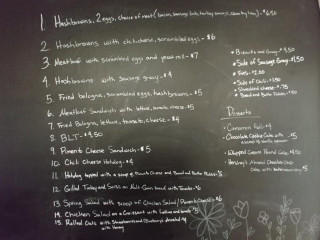 1. Hashbrowns, 2 eggs, choice of meat (bacon, sausage, turkey, country ham) - $6.50
2. Hashbrowns with chili, cheese, scrambled eggs - $6
3. Meatloaf with scrambled egg and pees roll - $7
4. Hashbrowns with sausage gravy - $4
5. Fried bologna, scrambled eggs, hashbrowns - $5
6. Meatloaf Sandwich with lettuce, tomato, cheese $5
7. Fried Bologna, lettuce, tomato, cheese - $4
8. BLT - $4.50
9. Pimento Cheese Sandwich - $5
10. Chili Cheese Hotdog - $4
11. Hotdog topped with a scoop of Pimento Cheese and Bread and Butter Pickles
12. Grilled Turkey and Swiss on Multi-Grain bread with Tomato - $6
13. Spring Salad with scoop of Chicken Salad / Pimento Cheese - $6
14. Chicken Salad on a Croissant with Lettuce and tomato
15. Rolled Oats with Strawberries and Blueberry drizzled with Honey
* Biscuits and Gravy - $4.50
* Side of Sausage Gravy - $1.50
* Fries - $2.00
* Side of Chili - $1.50
* Shredded cheese - $.75
* Bread and Butter Pickles - $.50
Desserts
- Cinnamon Roll - $4
- Chocolate Cookie Cake with - $5
- Whipped Cream Pound Cake $4.50
- Hershey's Almond Chocolate Chip Cake with $5